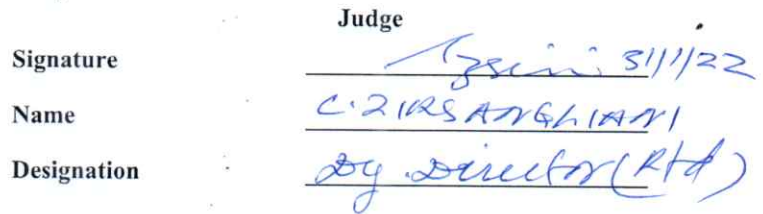 Judge
Signature 31/1/22
Name C. ZIRSANGLIANI
Designation Dy. Director (Rtd)